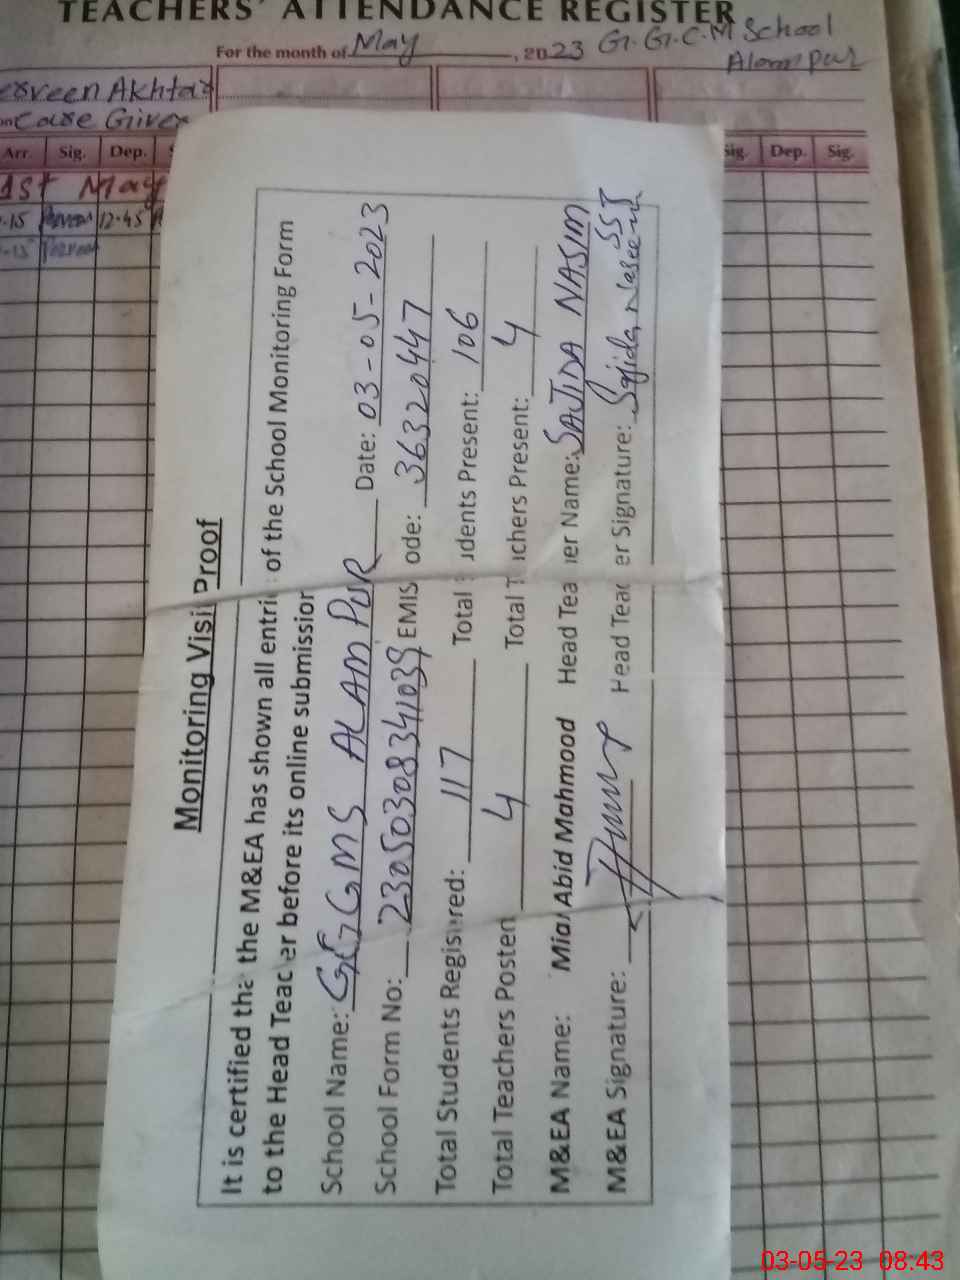 TEACHERS' ATTENDANCE REGISTER
For the month of May, 2023 G.G.C.M School
Alampur
erveen Akhtar
Care Giver
Arr. Sig. Dep. Sig. Dep. Sig.
1st May
-15 Parveen 12-45
-15 Parveen
Monitoring Visit Proof
It is certified that the M&EA has shown all entries of the School Monitoring Form
to the Head Teacher before its online submission
School Name: GGCMS ALAM PUR Date: 03-05-2023
School Form No: EMIS Code: 36320447
Total Students Registered: 117 Total Students Present: 106
Total Teachers Posted 4 Total Teachers Present: 4
M&EA Name: Mian Abid Mahmood Head Teacher Name: SAJIDA NASIM
M&EA Signature: Head Teacher Signature: Sajida Naseem
SST
03-05-23 08:43